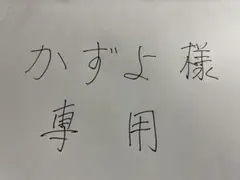 かずよ様
専用